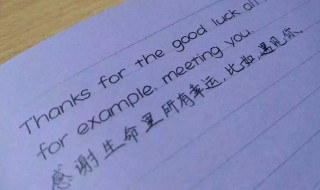 Thanks for the good luck all
for example, meeting you.
感谢生命里所有幸运,比如,遇见你、